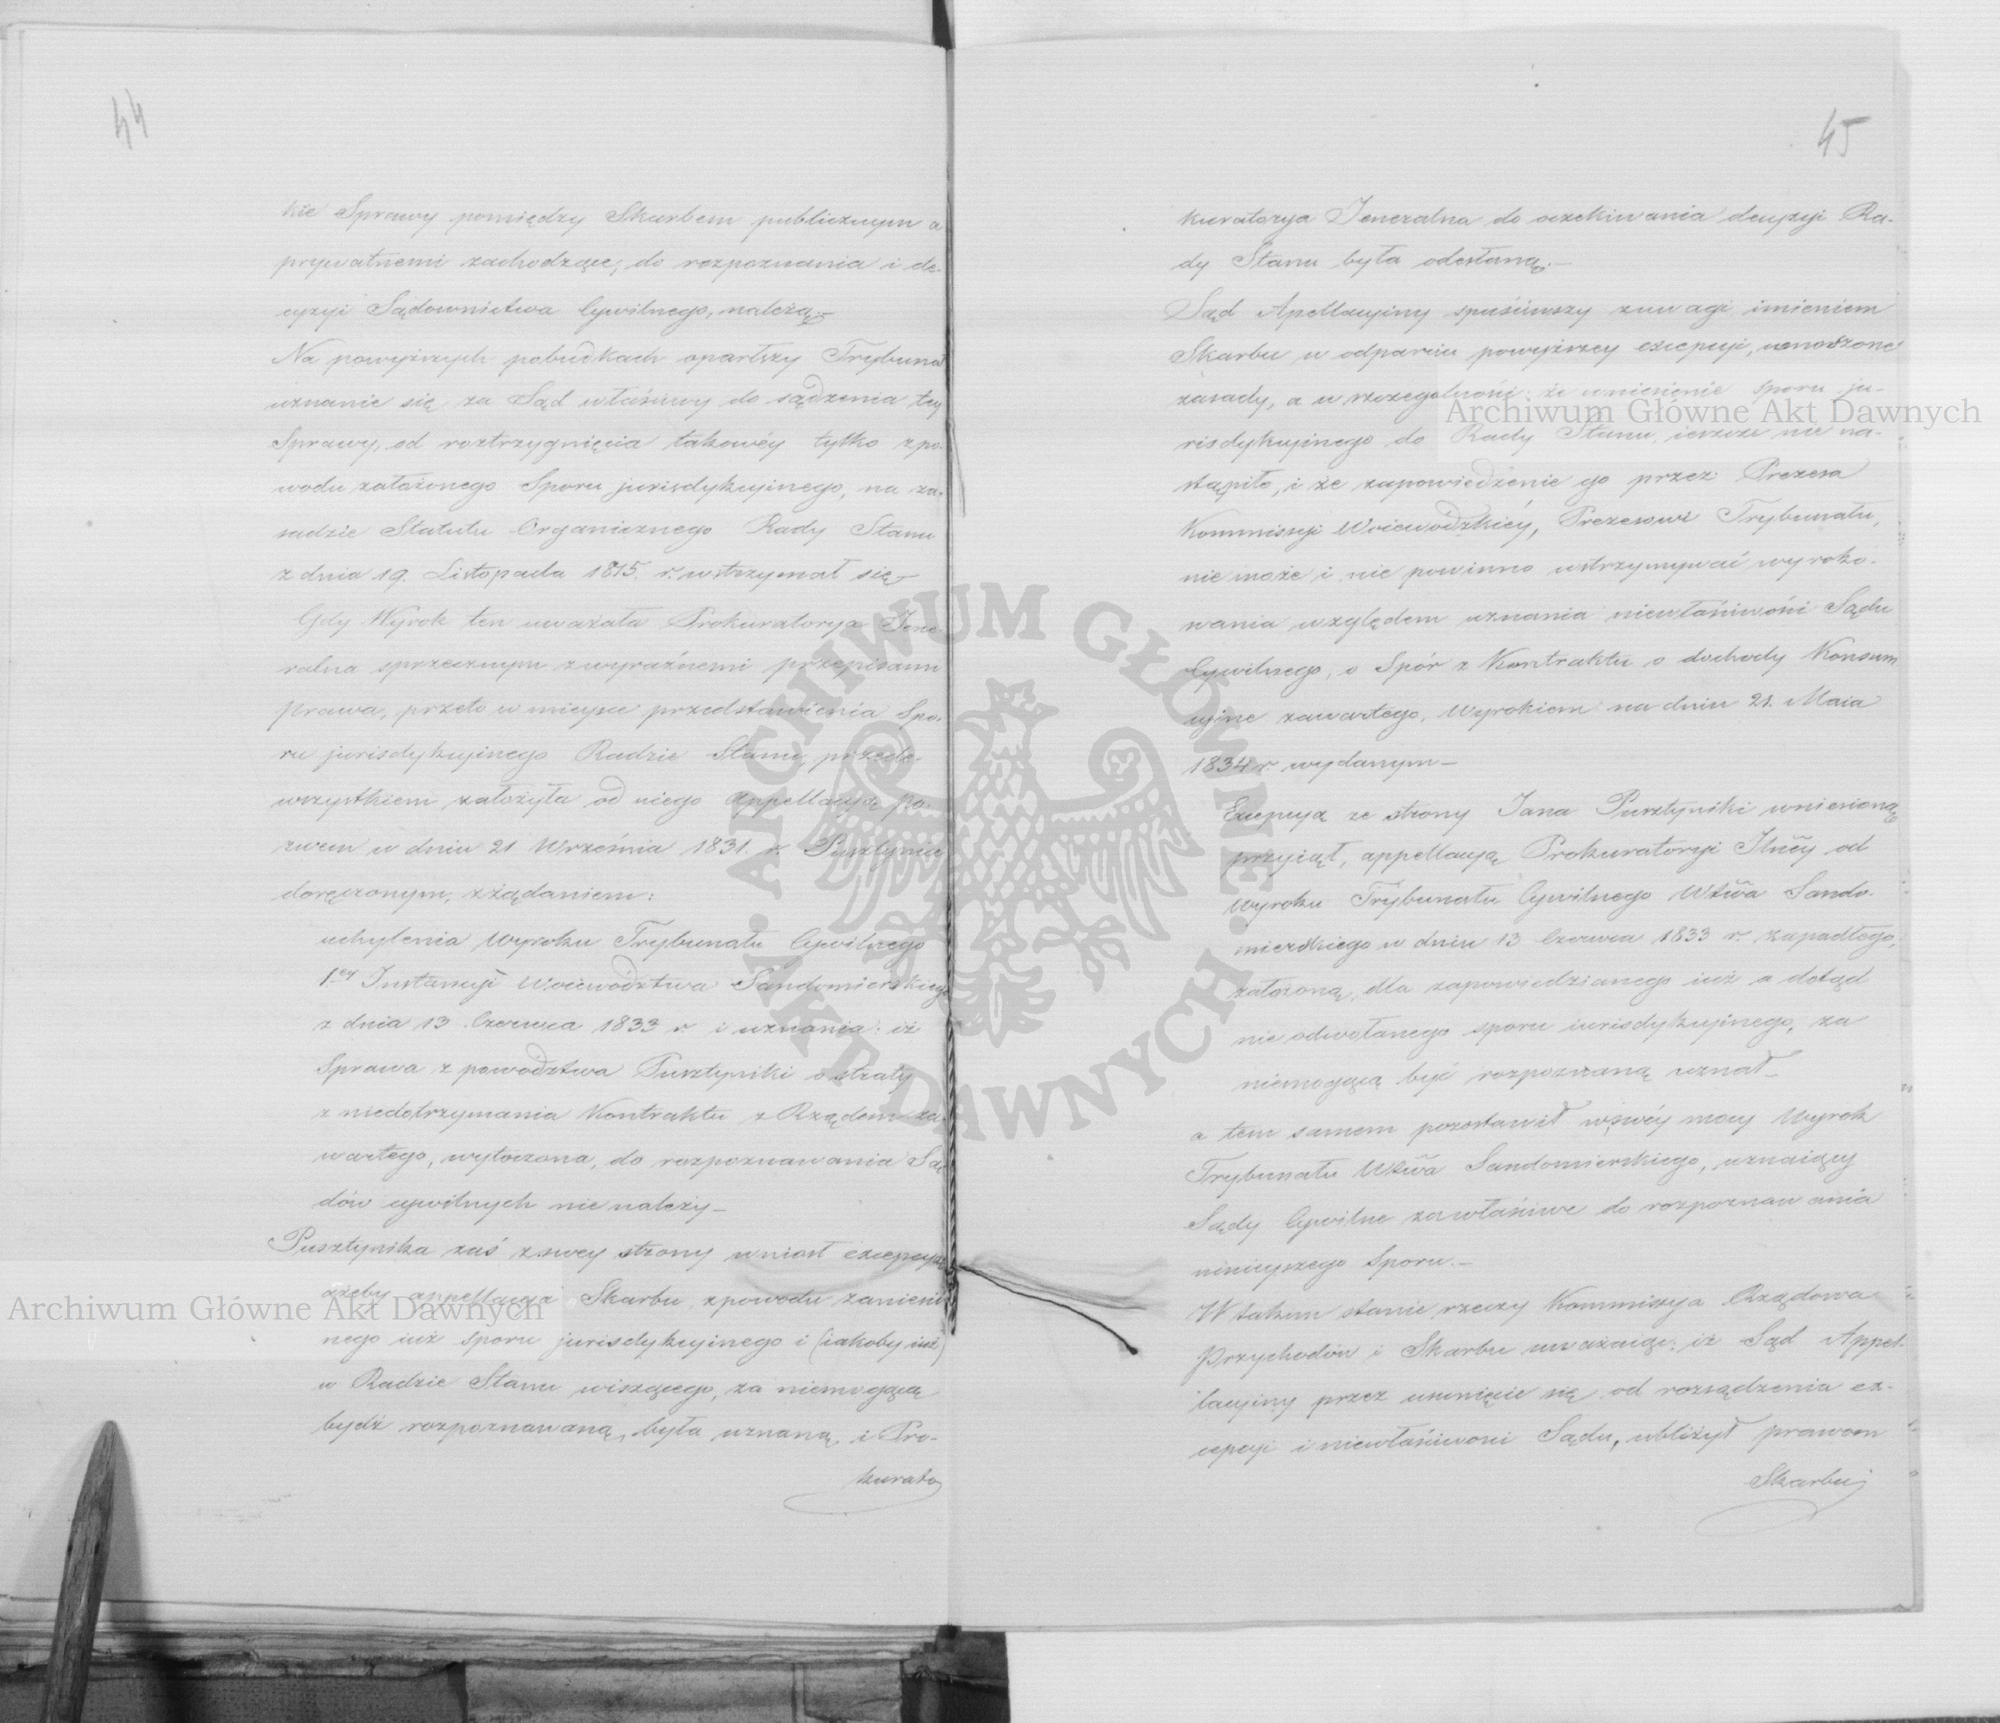 44
kie Sprawy pomiędzy Skarbem publicznym a
prywatnemi zachodzące, do rozpoznania i de-
cyzyi Sądownictwa Cywilnego, należą.–
Na powyższych pobudkach oparłszy Trybunał
uznanie się za Sąd właściwy do sądzenia tey
Sprawy, od roztrzygnięcia takowéy tylko z po-
wodu założonego Sporu jurisdykcyinego, na za-
sadzie Statutu Organicznego Rady Stanu
z dnia 19. Listopada 1815. r. wstrzymał się–
Gdy Wyrok ten uważała Prokuratorya Jene-
ralna sprzecznym z wyraźnemi przepisami
prawa, przeto w mieysce przedstawienia Spo-
ru jurisdykcyinego Radzie Stanu, przede-
wszystkiem założyła od niego appellacyą po-
zwem w dniu 21 Września 1831. r. Pusztynice
doręczonym, z żądaniem:
uchylenia Wyroku Trybunału Cywilnego
1ey Instancyi Woiewództwa Sandomierskiego
z dnia 13 Czerwca 1833 r. i uznania: iż
Sprawa z powództwa Pusztyniki o straty
z niedotrzymania Kontraktu z Rządem za-
wartego, wytoczona, do rozpoznawania Są-
dów cywilnych nie należy–
Pusztynika zaś z swey strony wniosł excepcyą
ażeby appellacya Skarbu, z powodu zaniesio-
nego iuż sporu jurisdykcyinego i (iakoby iuż)
w Radzie Stanu wiszącego, za niemogącą
bydź rozpoznawaną, była uznaną, i Pro-
kurato
45
kuratorya Jeneralna do oczekiwania decyzyi Ra-
dy Stanu była odesłaną.–
Sąd Apellacyiny spuściwszy z uwagi imieniem
Skarbu w odparciu powyższey excepcyi, wnoszone
zasady, a w szczególności: że wniesienie sporu ju-
risdykcyinego do Rady Stanu, ieszcze nie na-
stąpiło, i że zapowiedzenie go przez Prezesa
Kommissyi Woiewódzkiéy, Prezesowi Trybunału,
nie może i nie powinno wstrzymywać wyroko-
wania względem uznania niewłaściwości Sądu
Cywilnego, o Spór z Kontraktu o dochody Konsum
cyine zawartego, Wyrokiem na dniu 21. Maia
1834 r. wydanym–
Excepcyą ze strony Jana Pusztyniki wniesioną
przyiął, appellacyą Prokuratoryi Jlnéy od
Wyroku Trybunału Cywilnego Wztwa Sando-
mierskiego w dniu 13 Czerwca 1833 r. zapadłego,
założoną, dla zapowiedzianego iuż a dotąd
nie odwołanego sporu iurisdykcyinego, za
niemogącą być rozpoznaną uznał–
a tem samem pozostawił w swéy mocy Wyrok
Trybunału Wztwa Sandomierskiego, uznaiący
Sądy Cywilne za właściwe do rozpoznawania
ninieyszego Sporu.–
W takim stanie rzeczy Kommissya Rządowa
Przychodów i Skarbu uważaiąc: iż Sąd Appel-
lacyiny przez usunięcie się od rozsądzenia ex-
cepcyi i niewłaściwości Sądu, ubliżył prawom
Skarbu
Archiwum Główne Akt Dawnych
Archiwum Główne Akt Dawnych
ARCHIWUM GŁÓWNE AKT DAWNYCH